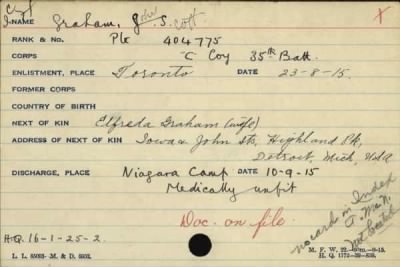 Cyf
NAME Graham, John S. Coff
RANK & NO. Pte 404775
CORPS "C" Coy 35th Batt.
ENLISTMENT, PLACE Toronto DATE 23-8-15.
FORMER CORPS
COUNTRY OF BIRTH
NEXT OF KIN Elfreda Graham (wife)
ADDRESS OF NEXT OF KIN Iowa & John Sts, Highland Pk,
Detroit, Mich, USA
DISCHARGE, PLACE Niagara Camp DATE 10-9-15
Medically unfit
Doc. on file.
no card in Index
H.Q. 16-1-25-2
L. L. 85093. M. & D. 8932.
M. F. W. 22.
H. Q. 1772-39-839.